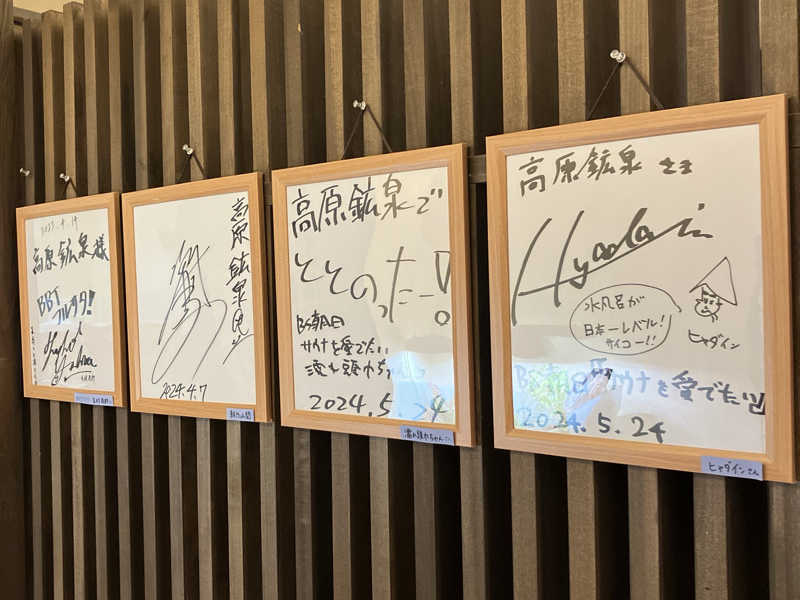 高原鉱泉様
BBT
フルサタ!
高原鉱泉さん
2024.4.7
高原鉱泉で
ととのったー!!
BS朝日
サウナを愛でたい
濡れ頭巾ちゃん
2024.5.24
濡れ頭巾ちゃんさん
高原鉱泉さま
Hyadain
水風呂が
日本一レベル!
サイコー!!
ヒャダイン
BS朝日サウナを愛でたい
2024.5.24
ヒャダインさん